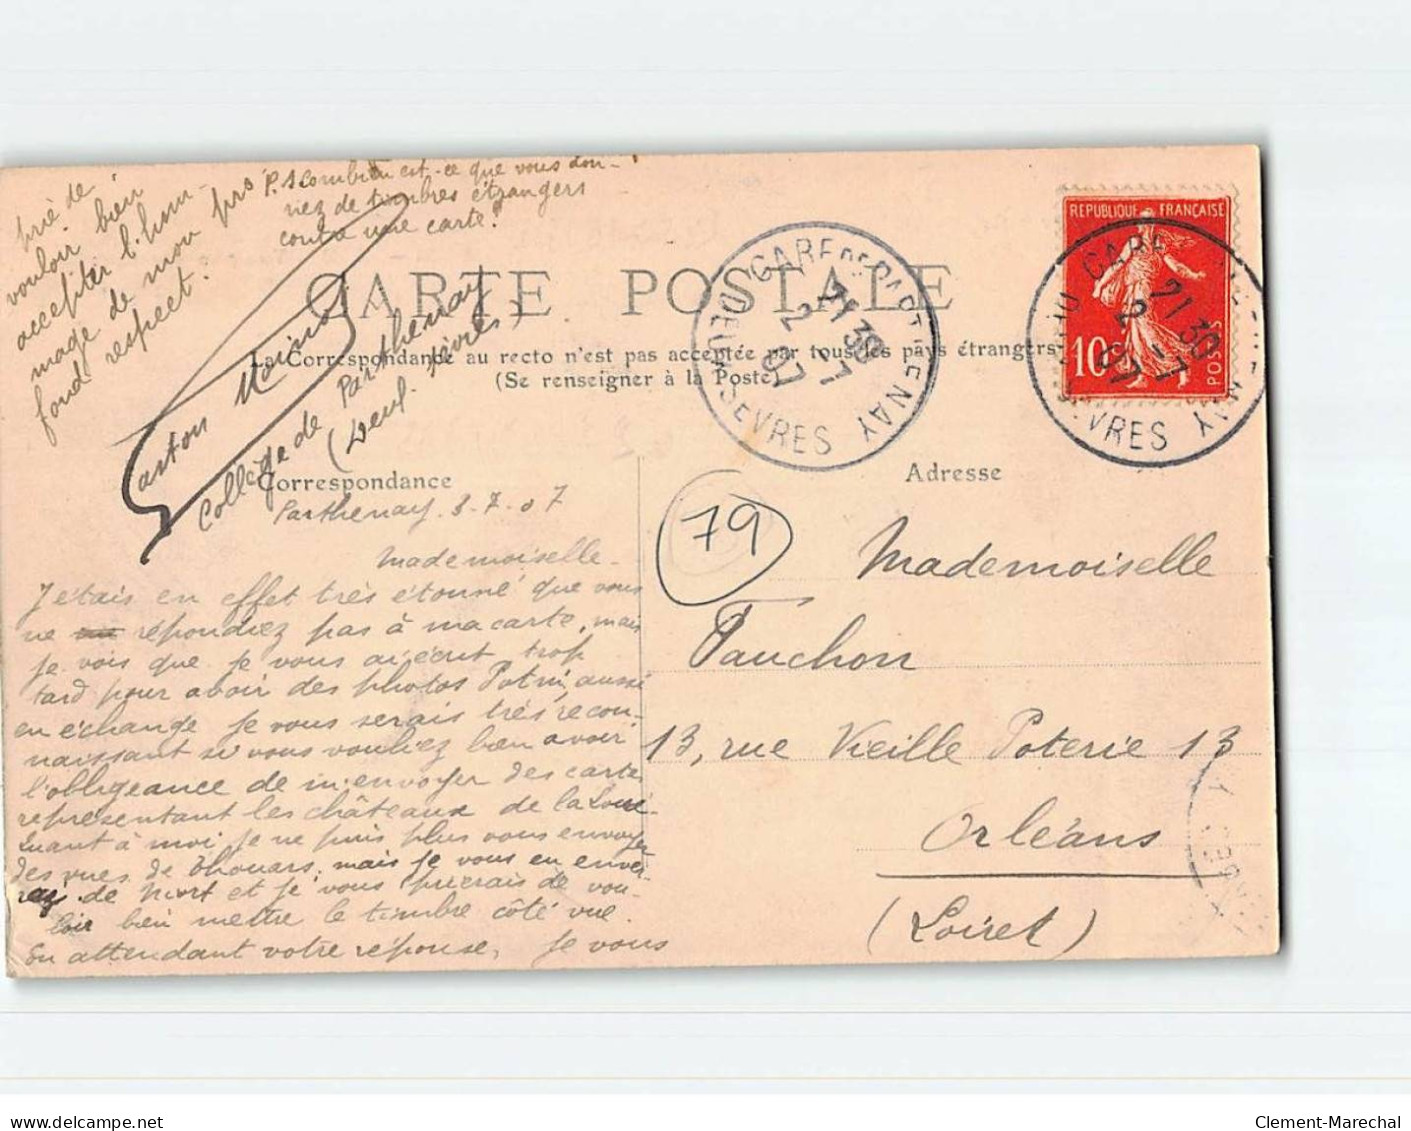 P.S Combien est-ce que vous don-
nez de timbres étrangers
contre une carte?
CARTE POSTALE
La Correspondance au recto n'est pas acceptée par tous les pays étrangers
(Se renseigner à la Poste)
Correspondance
Parthenay. 3.7.07
Mademoiselle.
J'étais en effet très étonné que vous
ne répondiez pas à ma carte, mais
je vois que je vous ai écrit trop
tard pour avoir des photos Potin, aussi
en échange je vous serais très recon-
naissant si vous vouliez bien avoir
l'obligeance de m'envoyer des cartes
représentant les châteaux de la Loire.
Quant à moi je ne puis plus vous envoyer
des vues de Thouars, mais je vous en enver-
rai de Niort et je vous prierais de vou-
loir bien mettre le timbre côté vue.
En attendant votre réponse, je vous
prie de
vouloir bien
accepter l'hom-
mage de mon pro
fond respect.
Gaston
Collège de Parthenay
(Deux Sèvres)
79
Adresse
Mademoiselle
Fauchon
13, rue Vieille Poterie 13
Orléans
(Loiret)
REPUBLIQUE FRANÇAISE
10
POSTES
GARE DE PARTHENAY
DEUX SEVRES
21 30
2 -7
07
GARE
SEVRES
21 30
2 -7
07
Clement-Marechal
www.delcampe.net